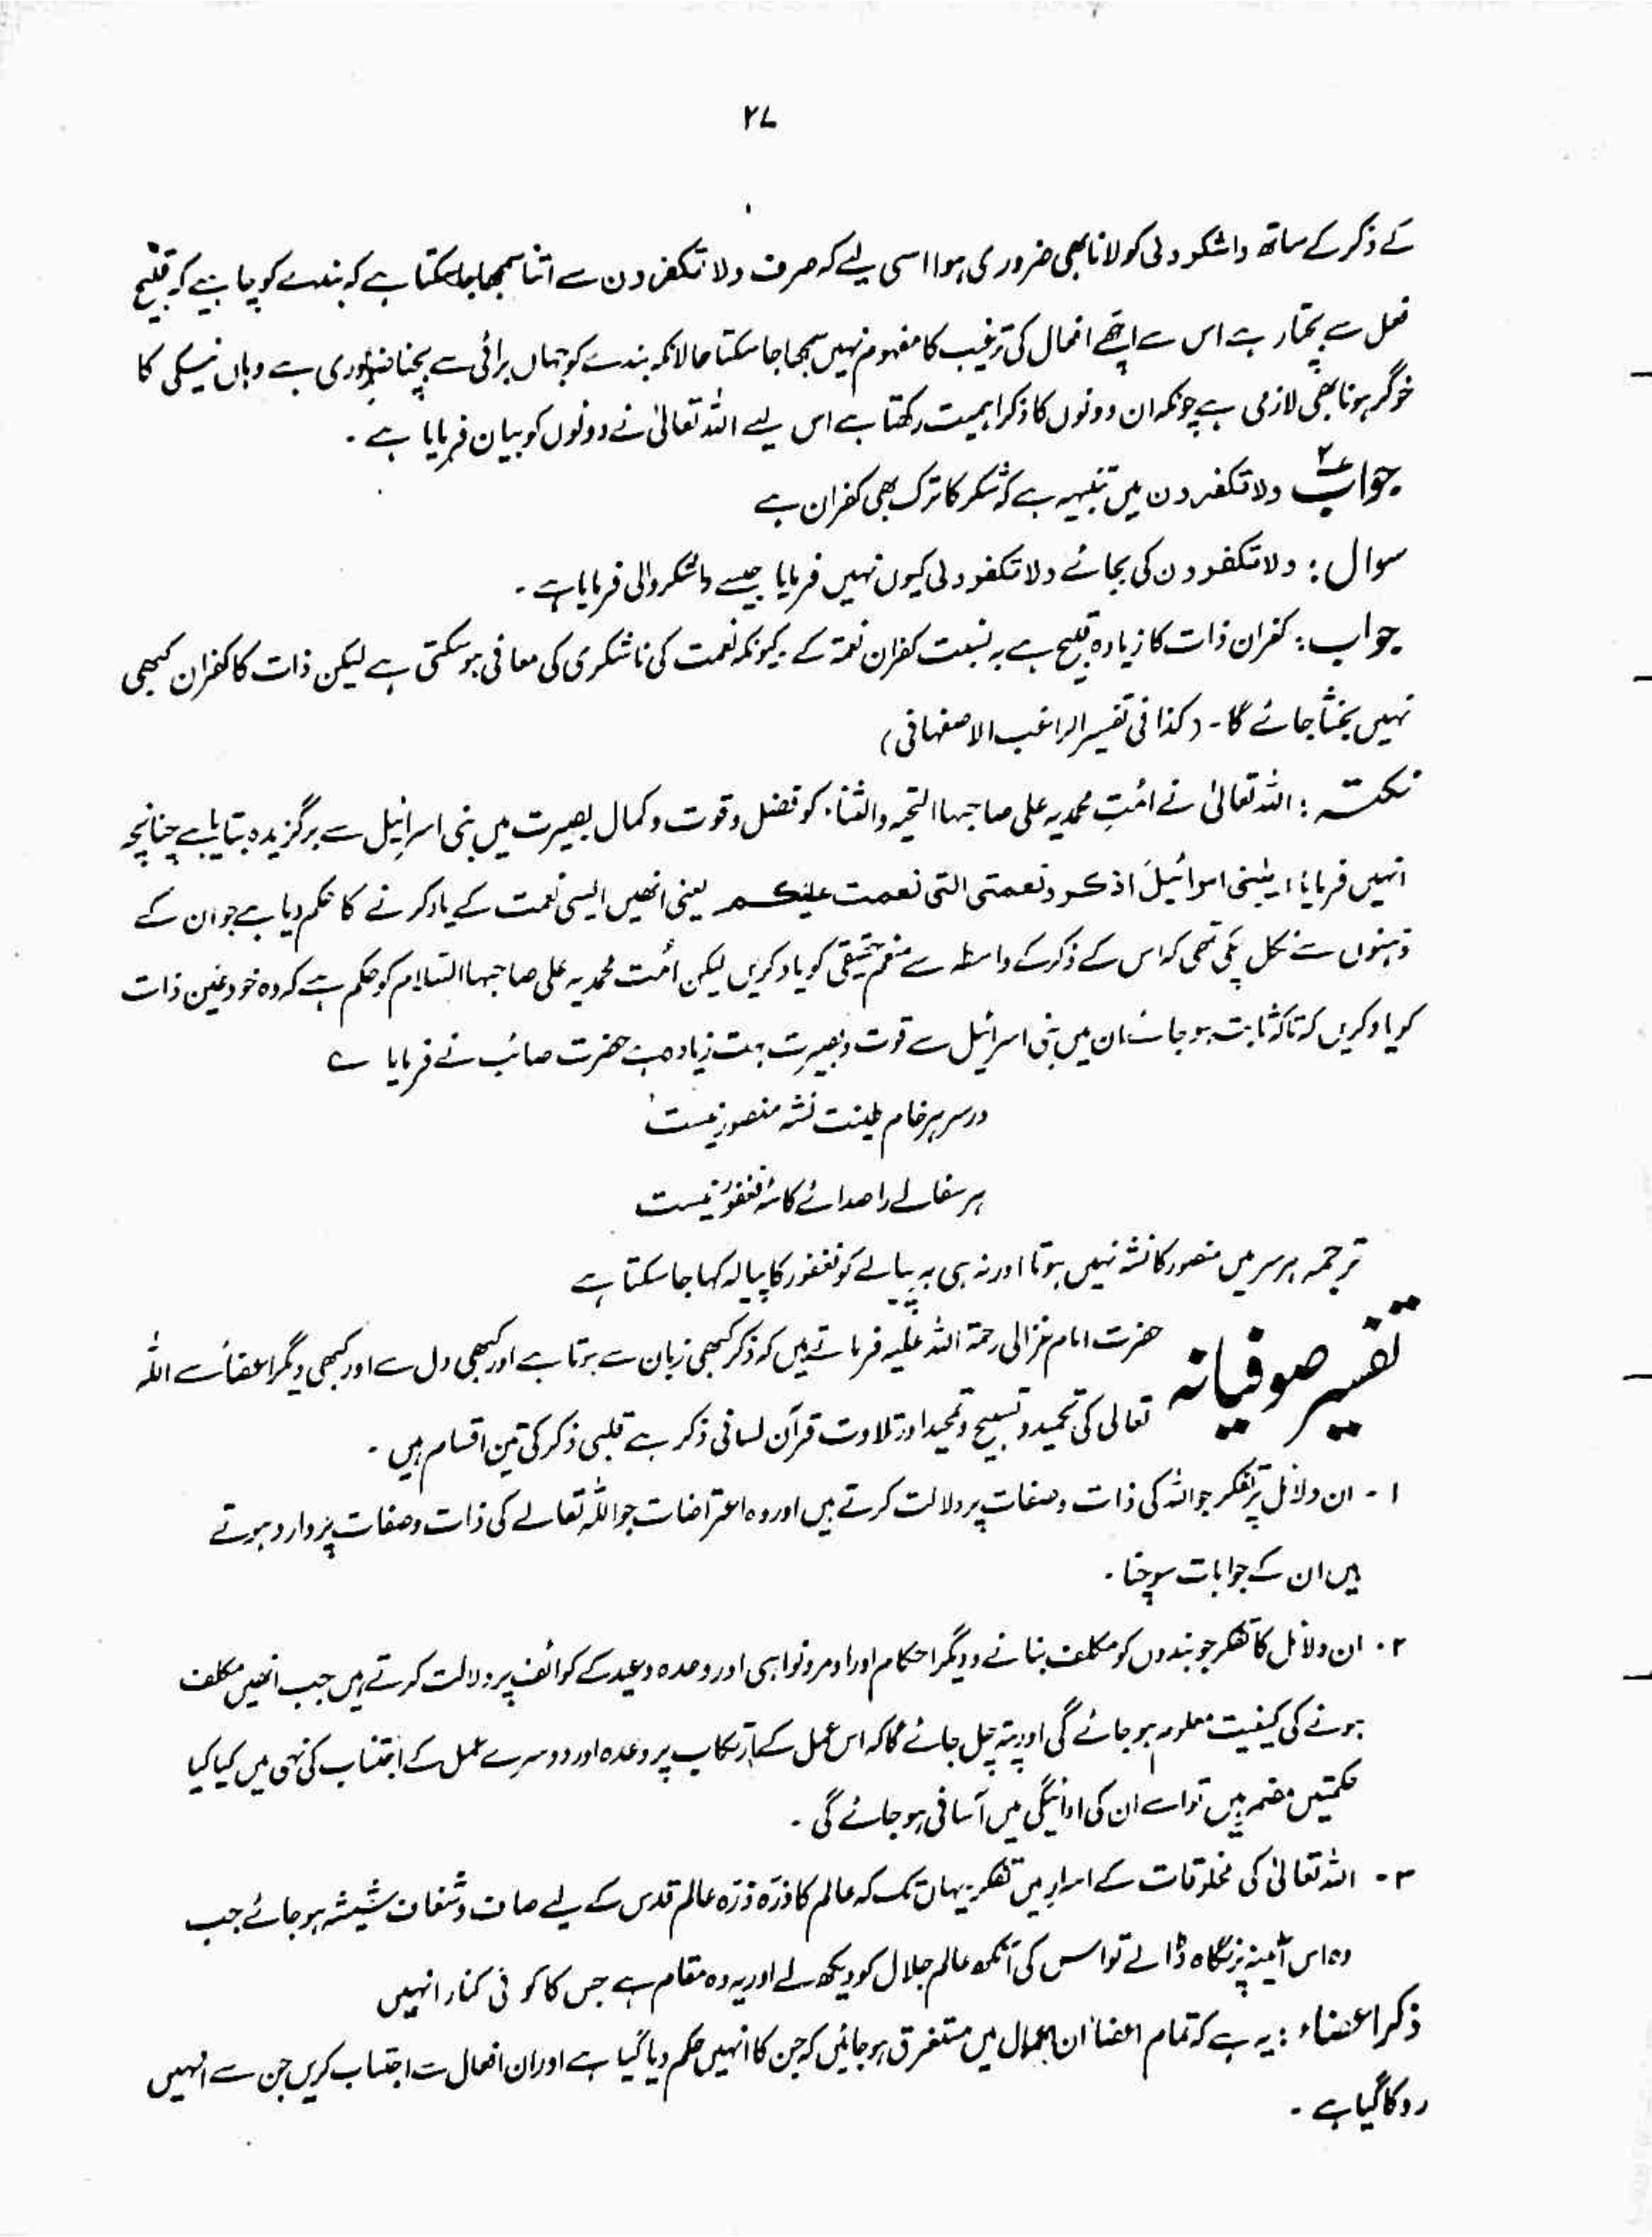 ۲۷
کے ذکر کے ساتھ واشکرولی کو لانا بھی ضروری ہوا اسی لیے کہ صرف ولاتکفرون سے اتنا سمجھا جاسکتا ہے کہ بندے کو چاہیے کہ قبیح
فعل سے بچتا رہے اس سے اچھے افعال کی ترغیب کا مفہوم نہیں سمجھا جاسکتا حالانکہ بندے کو جہاں برائی سے بچنا ضروری ہے وہاں نیکی کا
خوگر ہونا بھی لازمی ہے چونکہ ان دونوں کا ذکر اہمیت رکھتا ہے اس لیے اللہ تعالیٰ نے دونوں کو بیان فرمایا ہے ۔
جواب ۲ ولاتکفرون میں تنبیہہ ہے کہ شکر کا ترک بھی کفران ہے
سوال : ولاتکفرون کی بجائے ولاتکفرولی کیوں نہیں فرمایا جیسے واشکروالی فرمایا ہے ۔
جواب : کفران ذات کا زیادہ قبیح ہے بہ نسبت کفران نعمۃ کے ۔ کیونکہ نعمت کی ناشکری کی معافی ہوسکتی ہے لیکن ذات کا کفران کبھی
نہیں بخشا جائے گا ۔ (کذا فی تفسیر الراغب الاصفہانی)
نکتہ : اللہ تعالیٰ نے امُتِ محمدیہ علی صاحبہا التحیہ والثناء کو فضل و قوت و کمال بصیرت میں بنی اسرائیل سے برگزیدہ بتایا ہے چنانچہ
انہیں فرمایا ، یٰبنی اسرائیلَ اذکرو نعمتی التی نعمت علیکم یعنی انھیں ایسی نعمت کے یاد کرنے کا حکم دیا ہے جو ان کے
ذہنوں سے نکل چکی تھی کہ اس کے ذکر کے واسطہ سے منعم حقیقی کو یاد کریں لیکن امُت محمدیہ علی صاحبہا السلام کو حکم ہے کہ وہ خود عین ذات
کو یاد کریں کہ تاکہ ثابت ہو جائے ان میں بنی اسرائیل سے قوت و بصیرت بہت زیادہ ہے حضرت صائب نے فرمایا ے
درسر ہر خام طینت نشہ منصور نیست
ہر سفالے را صدائے کاسۂ فغفور نیست
ترجمہ ہر سر میں منصور کا نشہ نہیں ہوتا اور نہ ہی ہر پیالے کو فغفور کا پیالہ کہا جاسکتا ہے
تفسیر صوفیانہ حضرت امام غزالی رحمۃ اللہ علیہ فرماتے ہیں کہ ذکر کبھی زبان سے ہوتا ہے اور کبھی دل سے اور کبھی دیگر اعضأ سے اللہ
تعالی کی تحمید و تسبیح و تمجید اور تلاوت قرآن لسانی ذکر ہے قلبی ذکر کی تین اقسام ہیں ۔
۱ ۔ ان دلائل پر تفکر جو اللہ کی ذات و صفات پر دلالت کرتے ہیں اور وہ اعتراضات جو اللہ تعالے کی ذات و صفات پر وارد ہوتے
ہیں ان کے جوابات سوچنا ۔
۲ ۔ ان دلائل کا تفکر جو بندوں کو مکلف بنانے و دیگر احکام اور اوامر و نواہی اور وعدہ وعید کے کوائف پر دلالت کرتے ہیں جب انھیں مکلف
ہونے کی کیفیت معلوم ہو جائے گی اور پتہ چل جائے گا کہ اس عمل کے ارتکاب پر وعدہ اور دوسرے عمل کے اجتناب کی نہی میں کیا کیا
حکمتیں مضمر ہیں تو اسے ان کی ادائیگی میں آسانی ہو جائے گی ۔
۳ ۔ اللہ تعالیٰ کی مخلوقات کے اسرار میں تفکر یہاں تک کہ عالم کا ذرّہ ذرّہ عالم قدس کے لیے صاف و شفاف شیشہ ہو جائے جب
وہ اس آئینہ پر نگاہ ڈالے تو اس کی آنکھ عالم جلال کو دیکھ لے اور یہ وہ مقام ہے جس کا کوئی کنارا نہیں
ذکر اعضاء : یہ ہے کہ تمام اعضأ ان اعمال میں مستغرق ہو جائیں کہ جن کا انہیں حکم دیا گیا ہے اور ان افعال سے اجتناب کریں جن سے انہیں
روکا گیا ہے ۔